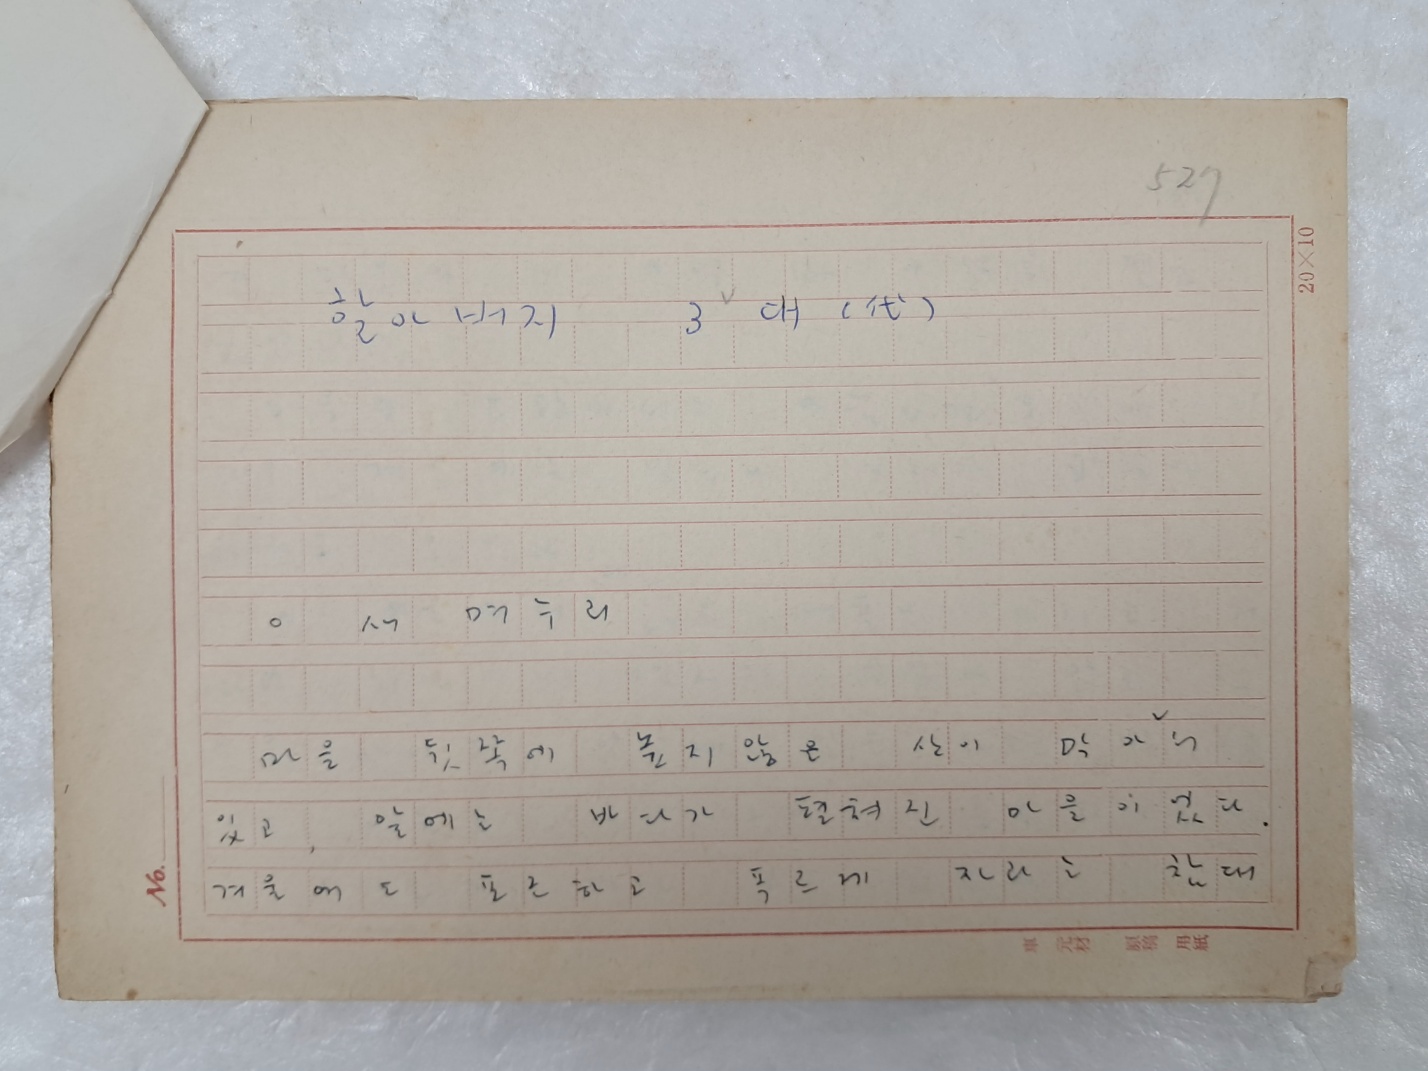 527
20×10
할아버지 3대 (代)
○ 새 며누리
마을 뒷쪽에 높지 않은 산이 막아
있고, 앞에는 바다가 펼쳐진 마을이 있다.
겨울에도 포근하고 푸르게 자라는 참대
No.
原稿用紙